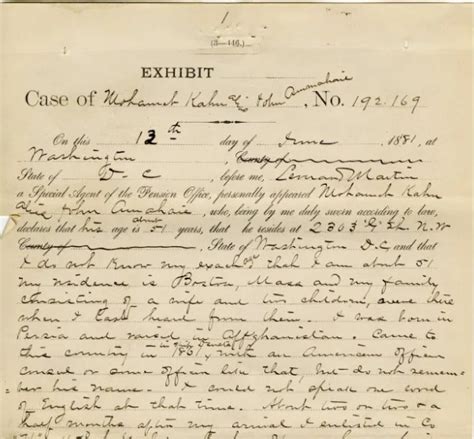 1
(3—446.)
EXHIBIT
Case of Mohamet Kahn alias John Ammahaie, No. 192.169
On this 13th day of June 1881, at
Washington County of
State of D-C before me, Martin
a Special Agent of the Pension Office, personally appeared Mohamet Kahn
alias John Ammahaie, who, being by me duly sworn according to law,
declares that his age is about 51 years, that he resides at 2303 G St. N.W
County of , State of Washington D.C, and that
I do not know my exact age that I am about 51
my residence is Boston, Mass and my family
consisting of a wife and two children, were there
when I last heard from them. I was born in
Persia and raised in Afghanistan. Came to
this country in 1861, with an American officer
consul or some officer like that, but do not remem-
ber his name. I could not speak one word
of English at that time. About two or two &
half months after my arrival I enlisted in Co